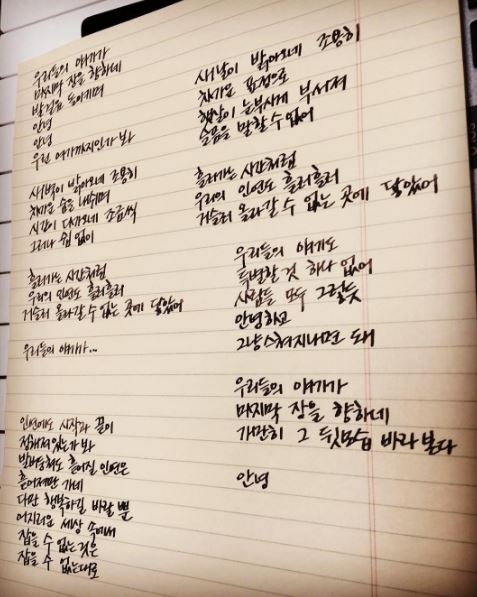 우리들의 얘기가
마지막 장을 향하네
발걸음 돌이키며
안녕
안녕
우린 여기까지인가 봐
새벽이 밝아오네 조용히
차가운 숨을 내쉬며
시간이 다가오네 조금씩
그러나 쉼 없이
흘러가는 시간처럼
우리의 인연도 흘러흘러
거슬러 올라갈 수 없는 곳에 닿았어
우리들의 얘기가...
인연에도 시작과 끝이
정해져있는가 봐
발버둥쳐도 흩어질 인연은
흩어져만 가네
다만 행복하길 바랄 뿐
어지러운 세상 속에서
잡을 수 없는 것은
잡을 수 없는대로
새날이 밝아오네 조용히
차가운 표정으로
햇살이 눈부시게 부서져
슬픔을 말할 수 없어
흘러가는 시간처럼
우리의 인연도 흘러흘러
거슬러 올라갈 수 없는 곳에 닿았어
우리들의 얘기도
특별할 것 하나 없어
사람들 모두 그렇듯
안녕하고
그냥 스쳐지나면 돼
우리들의 얘기가
마지막 장을 향하네
가만히 그 뒷모습 바라본다
안녕